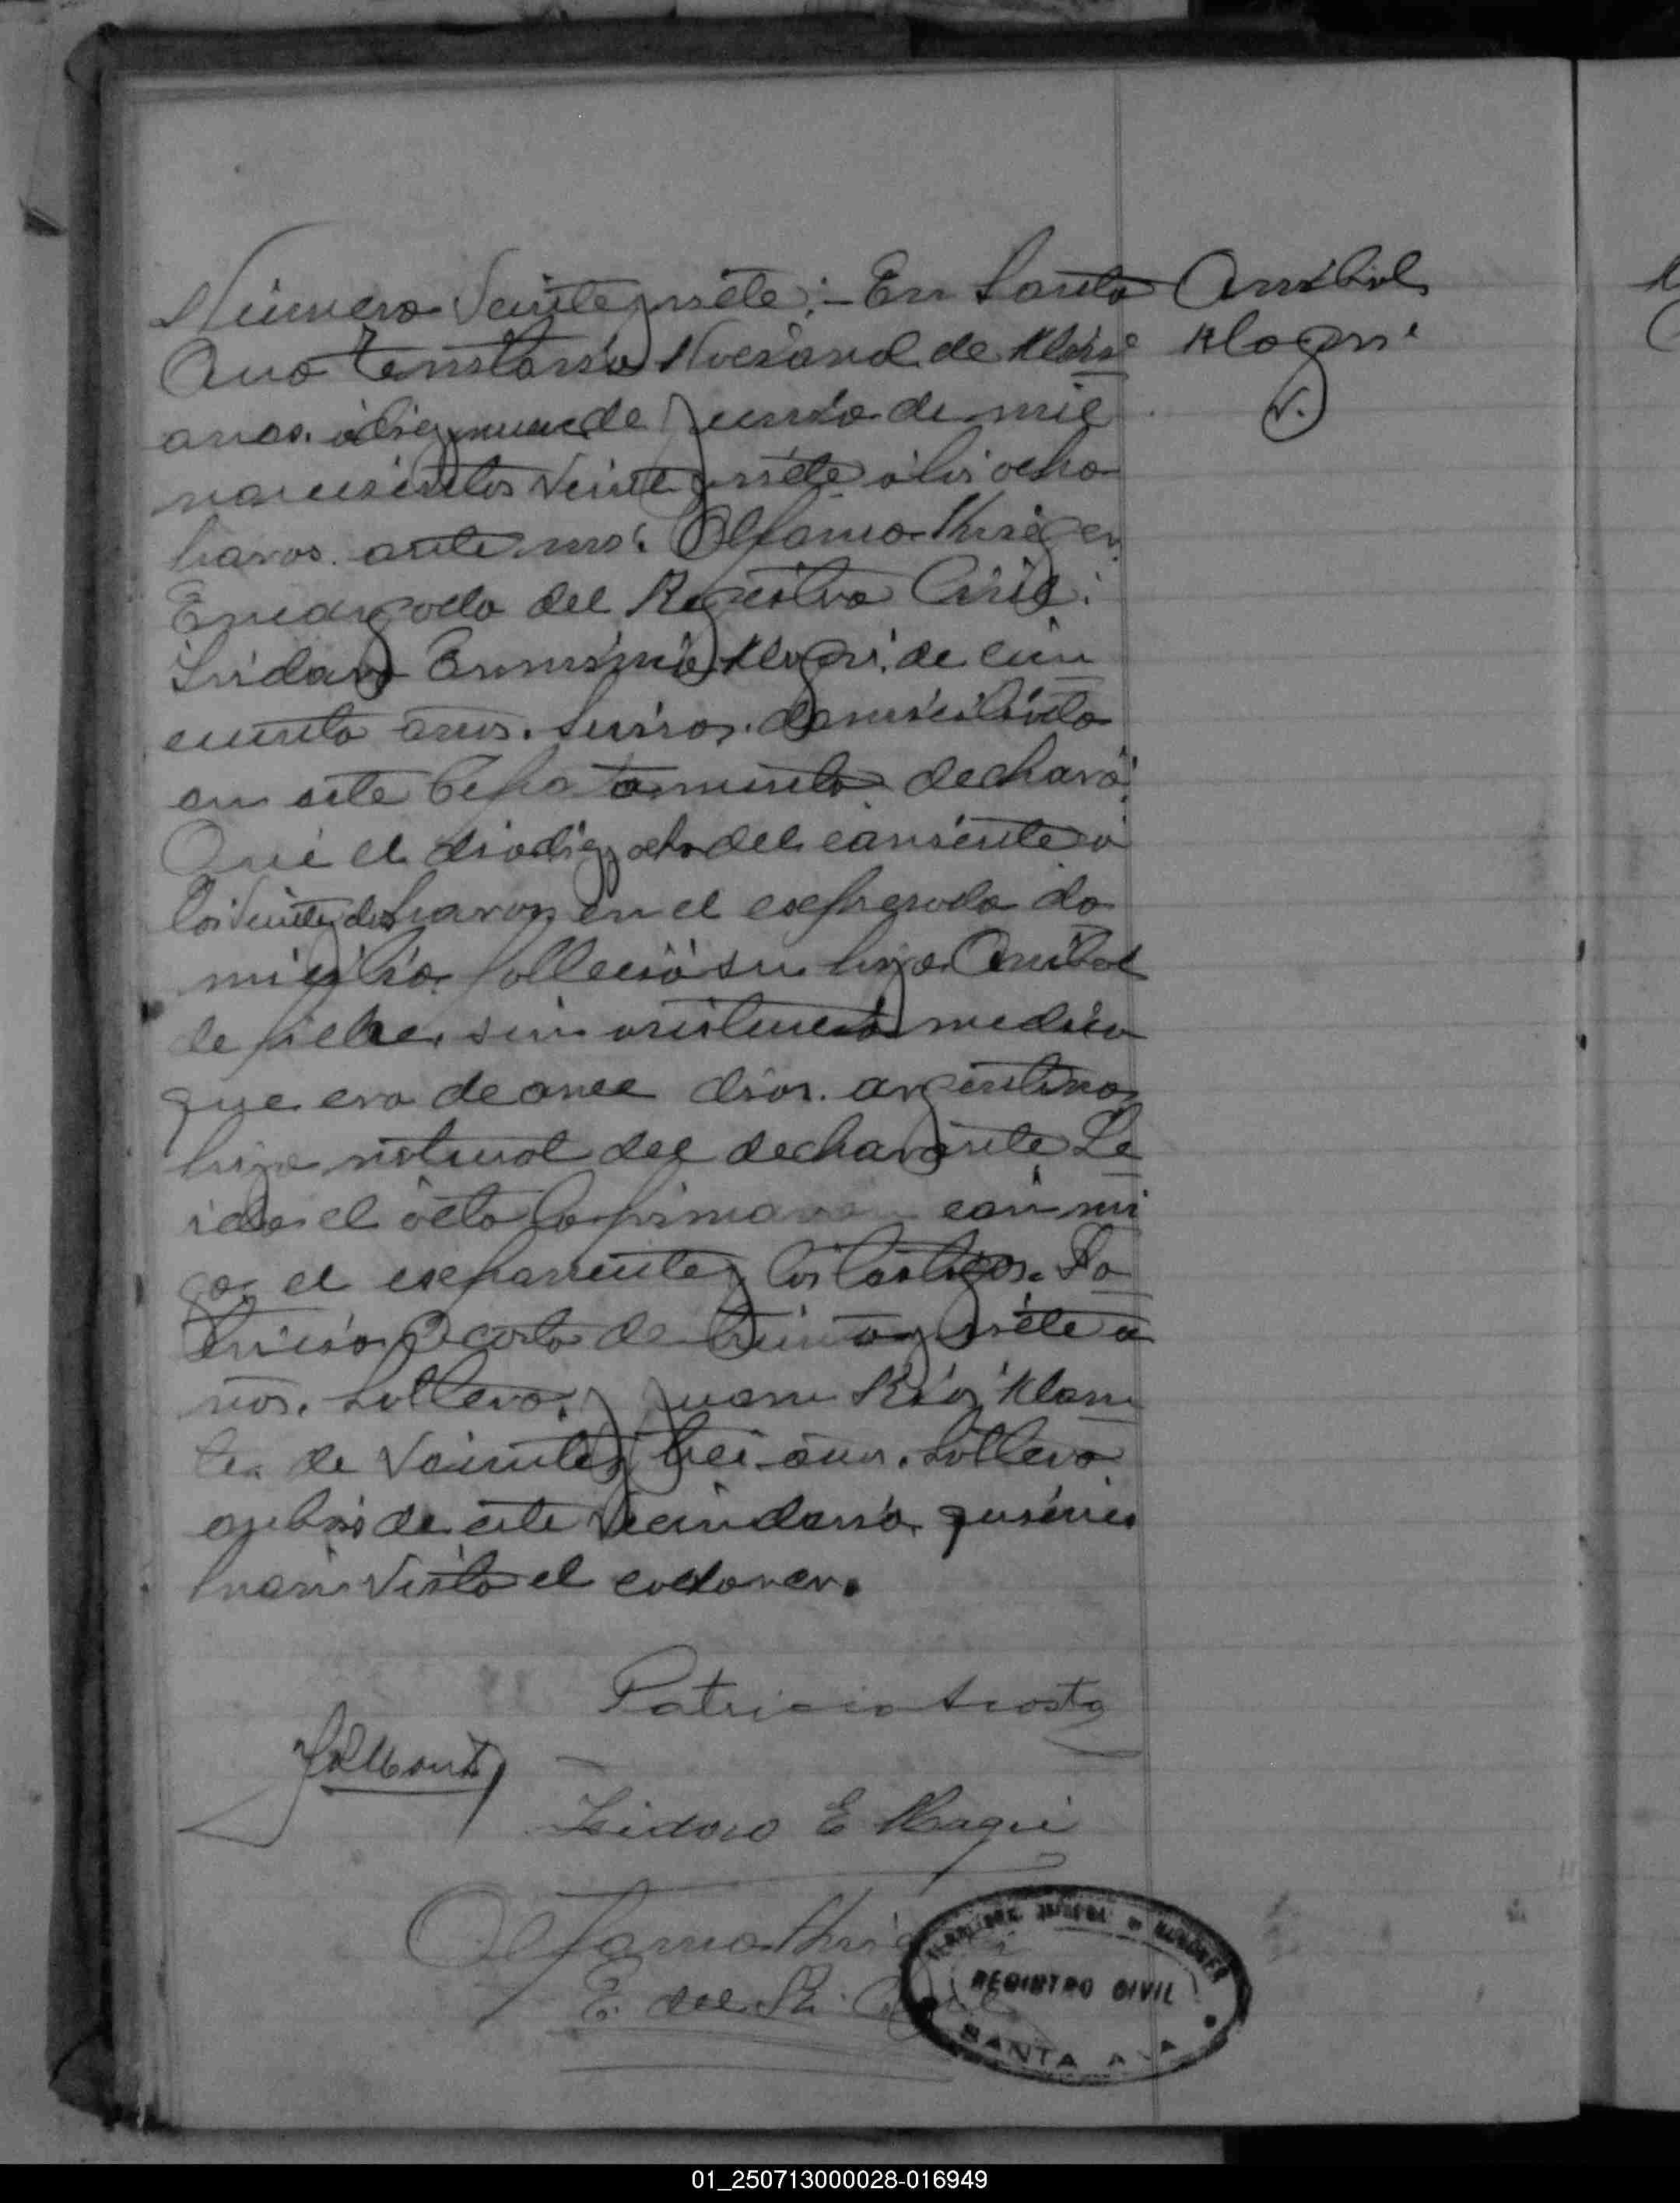 Número Veinte y siete:- En Santa
Ana Territorio Nacional de Misio
nes. á diez y nueve de Junio de mil
novecientos veinte y siete á las ocho
horas. ante mi:
Encargado del Registro Civil:
Isidoro Magni. de cin
cuenta años. Suizo. domiciliado
en este Departamento declaró:
Que el dia diez y ocho del corriente á
las veinte y dos horas en el expresado do
micilio. falleció su hijo Anibal
de fiebre. sin asistencia medica
que era de once dias. argentino
hijo natural del declarante Le
ida el acta la firmaron conmi
go, el exponente y los testigos. Pa
tricio Acosta de treinta y siete a
ños. soltero. y Juan Rios Mon
te. de veinte y tres años. soltero
ambos de este vecindario. quienes
han visto el cadaver.
Anibal
Magni
V.
Patricio Acosta
Isidoro E Magni
E. del R. Civil
REGISTRO CIVIL
SANTA ANA
01_250713000028-016949